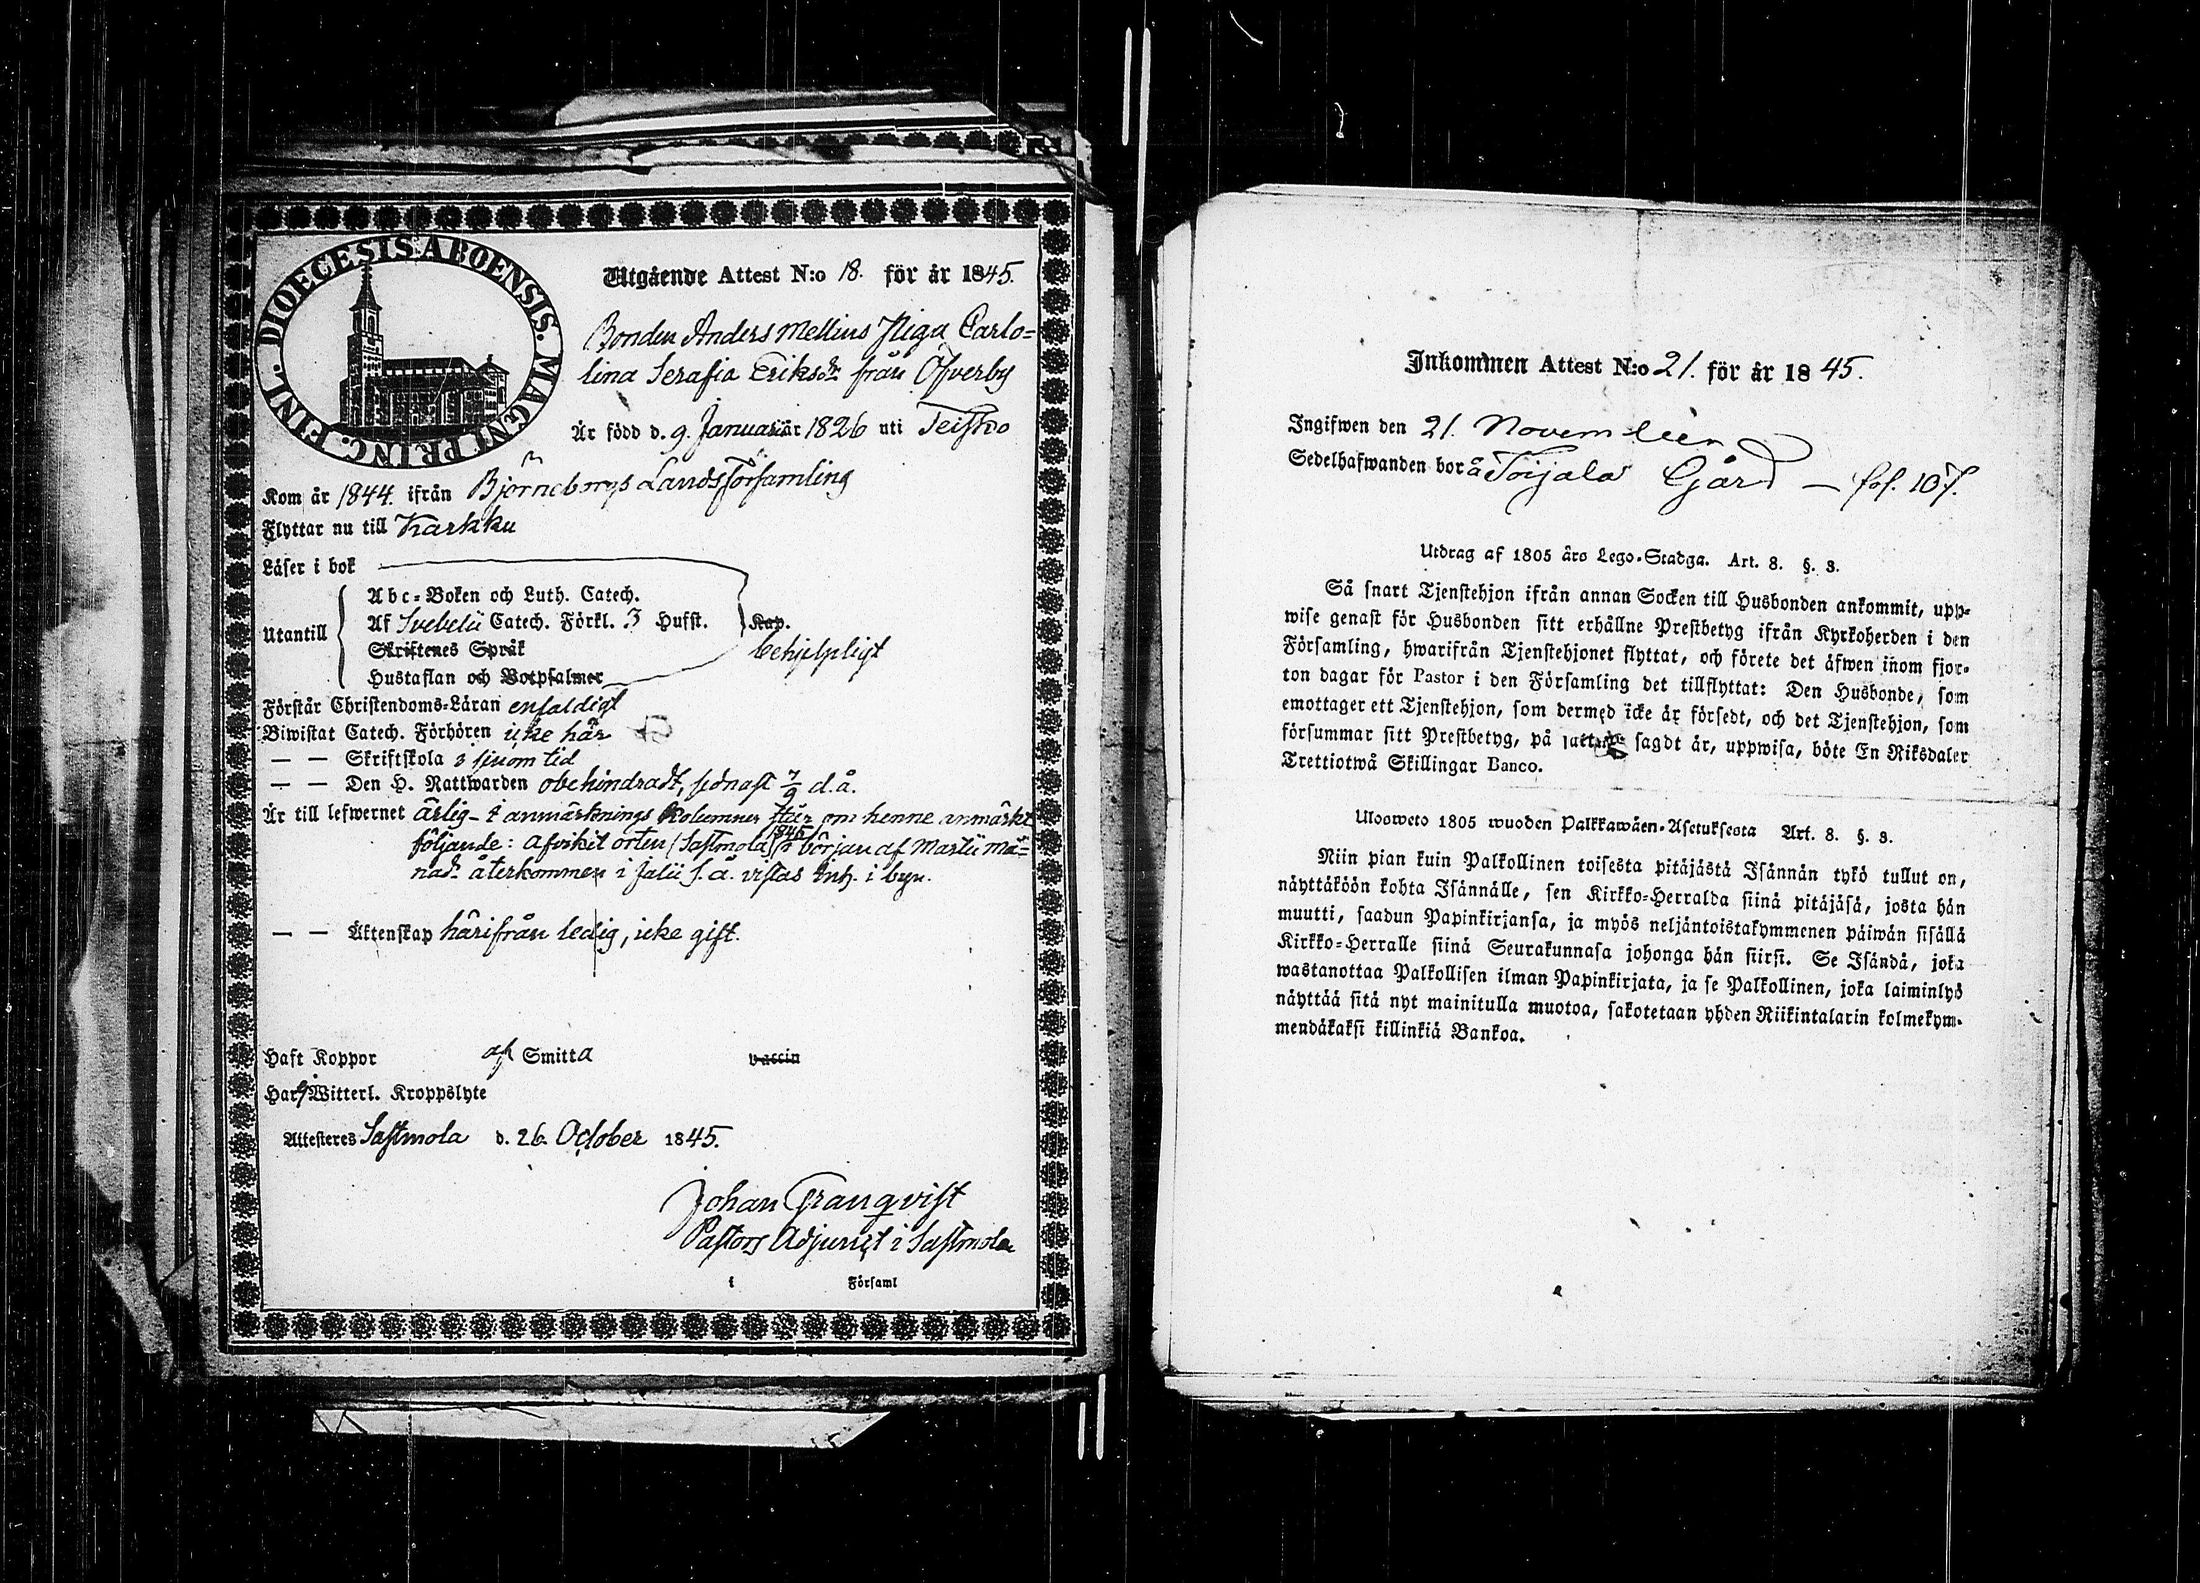 DIOECESIS ABOENSIS. MAGNI PRINC. FINL.
Utgående Attest N:o 18. för år 1845.
Bonden Anders Mellius Piga Carlo=
lina Serafia Eriksdr från Öfverby
Är född d. 9. Januari år 1826 uti Teisko
Kom år 1844. ifrån Björneborgs Landsförsamling
Flyttar nu till Karkku
Läser i bok
Utantill
Abc-Boken och Luth. Catech.
Af Svebelii Catech. Förkl. 3 Hufst. Kap.
Skriftenes Språk behjelpligt
Hustaflan och Botpsalmer
Förstår Christendoms-Läran enfaldigt
Biwistat Catech. Förhören icke här
— — Skriftskola i sinom tid
— — Den H. Nattwarden obehindradt, sednast 7/9 d.å.
Är till lefwernet ärlig - i anmärknings Kolumner står om henne anmärkt
följande: afvikit orten (Sastmola) 1845 i början af Martii må=
nad. återkommen i Julii s. å. vistas Inh. i byn.
— — Äktenskap härifrån ledig, icke gift.
Haft Koppor af Smitta vaccin
Har ej Witterl. Kroppslyte
Attesteras Sastmola d. 26. October 1845.
Johan Granqvist
Pastors Adjunct i Sastmola
i Församl
Inkommen Attest N:o 21. för år 1845.
Ingifwen den 21. November
Sedelhafwanden bor å Toijala Gård — fol. 107.
Utdrag af 1805 års Lego-Stadga. Art. 8. §. 3.
Så snart Tjenstehjon ifrån annan Socken till Husbonden ankommit, upp-
wise genast för Husbonden sitt erhållne Prestbetyg ifrån Kyrkoherden i den
Församling, hwarifrån Tjenstehjonet flyttat, och förete det äfwen inom fjor-
ton dagar för Pastor i den Församling det tillflyttat: Den Husbonde, som
emottager ett Tjenstehjon, som dermed icke är försedt, och det Tjenstehjon, som
försummar sitt Prestbetyg, på sagdt är, uppwisa, böte En Riksdaler
Trettiotwå Skillingar Banco.
Ulosweto 1805 wuoden Palkkawäen-Asetuksesta Art. 8. §. 3.
Niin pian kuin Palkollinen toisesta pitäjästä Isännän tykö tullut on,
näyttäköön kohta Isännälle, sen Kirkko-Herralda siinä pitäjäsä, josta hän
muutti, saadun Papinkirjansa, ja myös neljäntoistakymmenen päiwän sisällä
Kirkko-Herralle siinä Seurakunnasa johonga hän siirsi. Se Isändä, joka
wastanottaa Palkollisen ilman Papinkirjata, ja se Palkollinen, joka laiminlyö
näyttää sitä nyt mainitulla muotoa, sakotetaan yhden Riikintalarin kolmekym-
mendäkaksi killinkiä Bankoa.